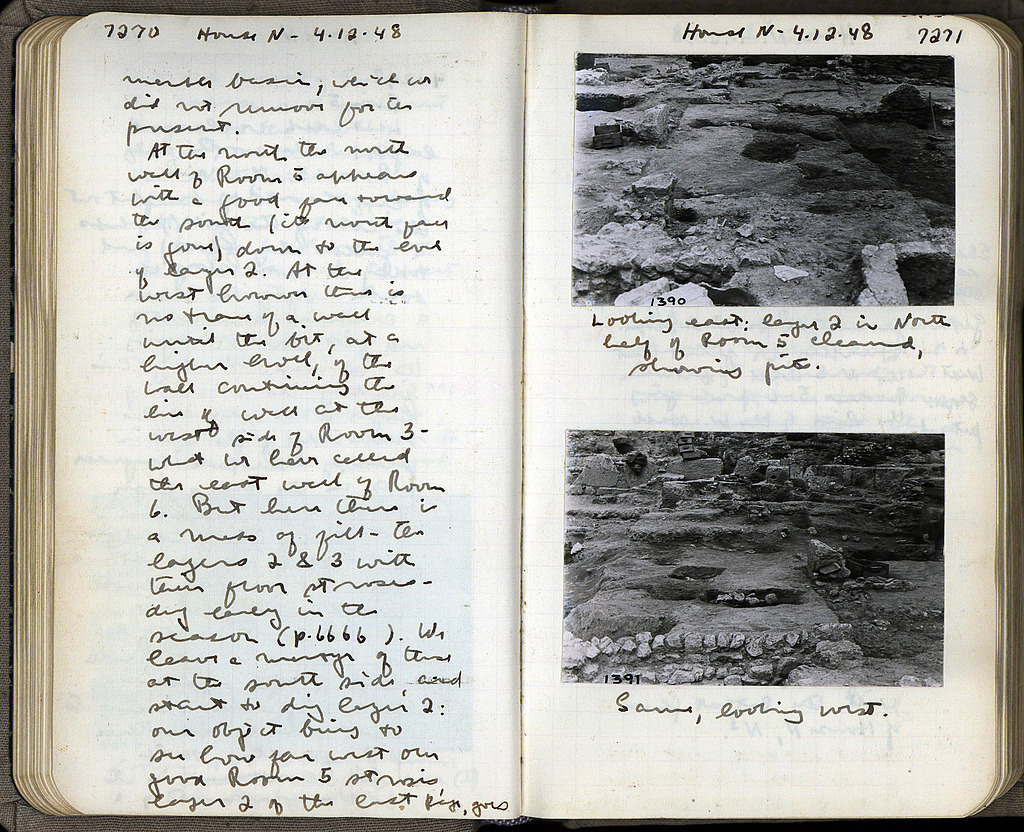 7270 House N - 4.12.48
basin, which we
did not remove for the
present.
At the north the north
wall of Room 5 appears
with a good face toward
the south (its north face
is gone) down to the level
of layer 2. At the
west however there is
no trace of a wall
until the bit, at a
higher level, of the
wall continuing the
line of wall at the
west side of Room 3 -
what we have called
the east wall of Room
6. But here there is
a mess of fill - the
layers 2 & 3 with
their floor strosis -
dug early in the
season (p. 6666). We
leave a of these
at the south side and
start to dig layer 2:
our object being to
see how far west our
good Room 5 strosis,
layer 2 of the east part, goes
House N - 4.12.48 7271
1390
Looking east: layer 2 in North
half of Room 5 cleaned,
showing pits.
1391
Same, looking west.